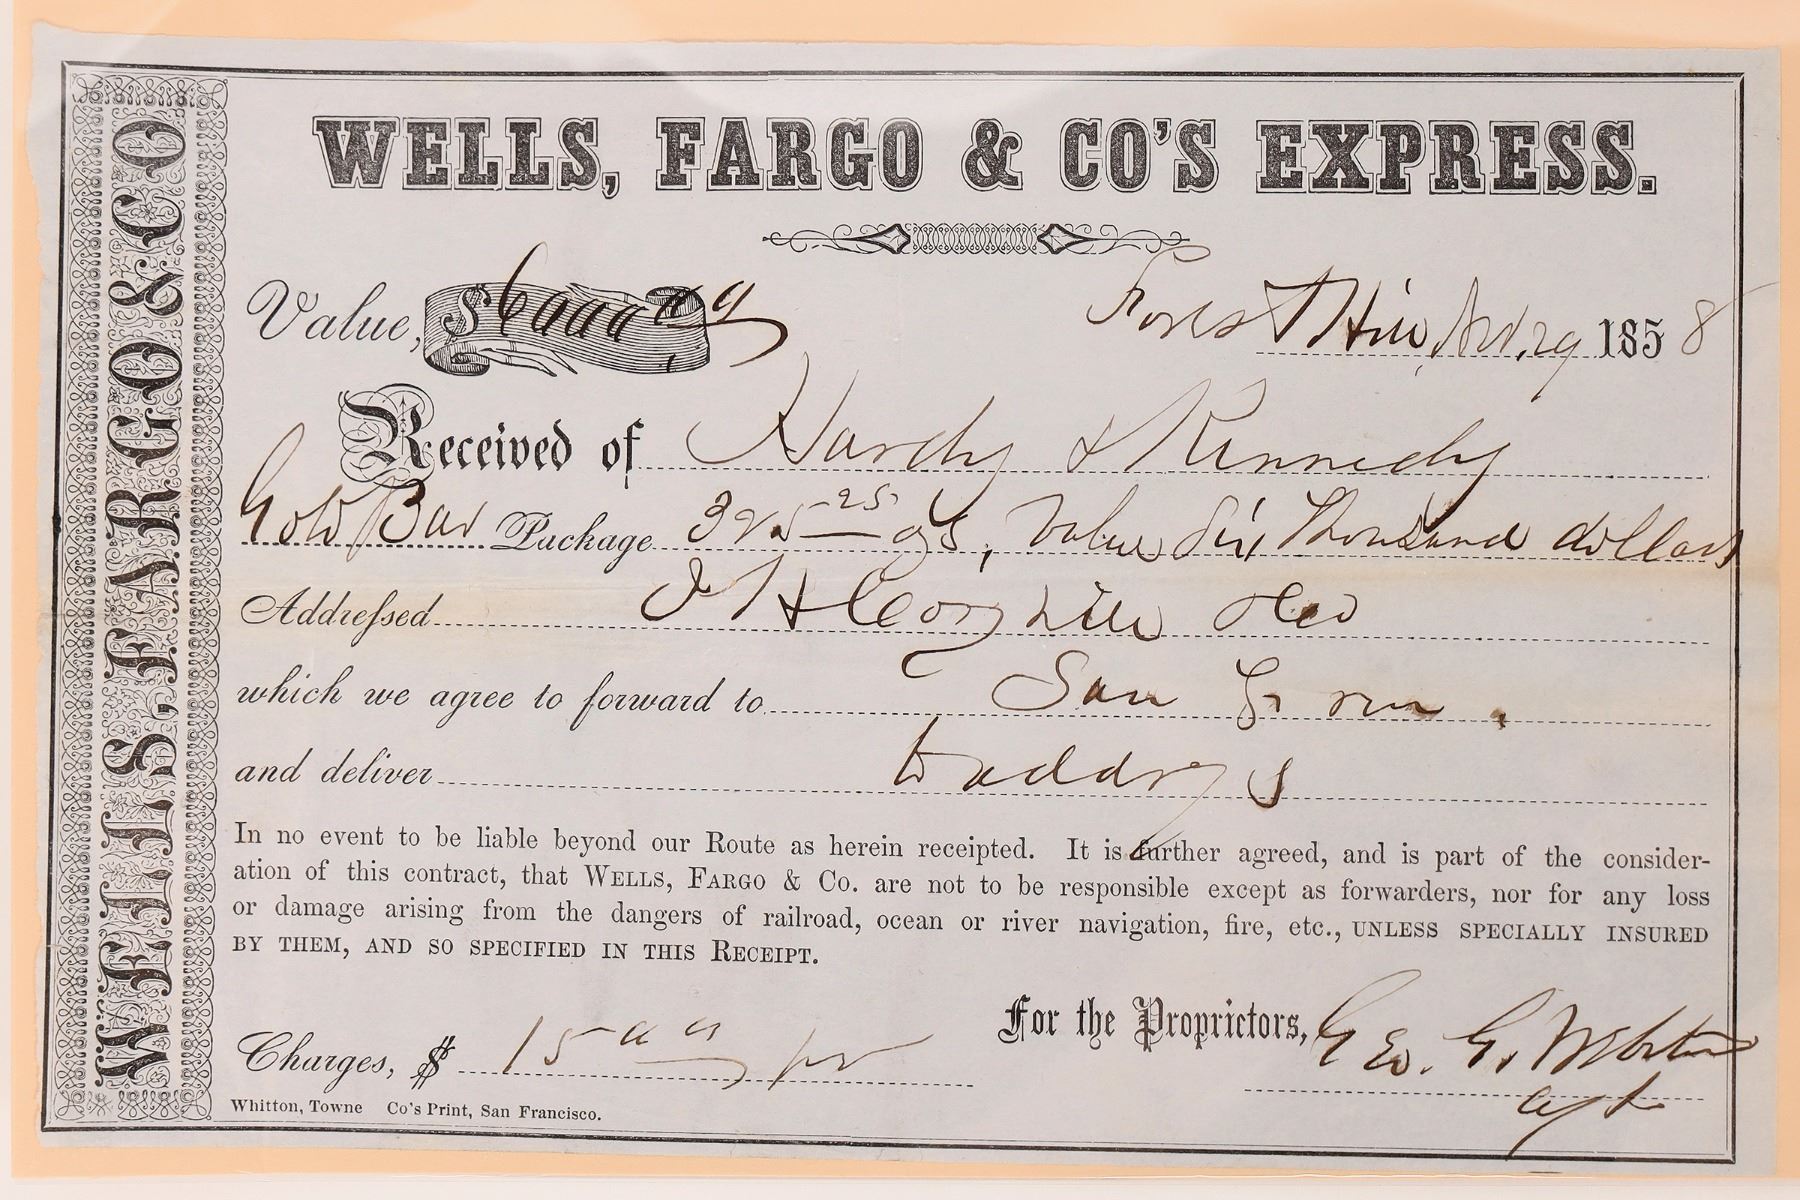 WELLS, FARGO & CO
WELLS, FARGO & CO'S EXPRESS.
Value, $6000.00
Forest Hill, Oct. 29 1858
Received of Hardy & Kennedy
Gold Bar Package 325 25 ozs, Value Six Thousand dollars
Addressed J H Coghill &Co
which we agree to forward to San Fran.
and deliver to address
In no event to be liable beyond our Route as herein receipted. It is further agreed, and is part of the consider-
ation of this contract, that WELLS, FARGO & Co. are not to be responsible except as forwarders, nor for any loss
or damage arising from the dangers of railroad, ocean or river navigation, fire, etc., UNLESS SPECIALLY INSURED
BY THEM, AND SO SPECIFIED IN THIS RECEIPT.
For the Proprietors, Geo. G. Webster
Charges, $ 15 00
agt
Whitton, Towne Co's Print, San Francisco.